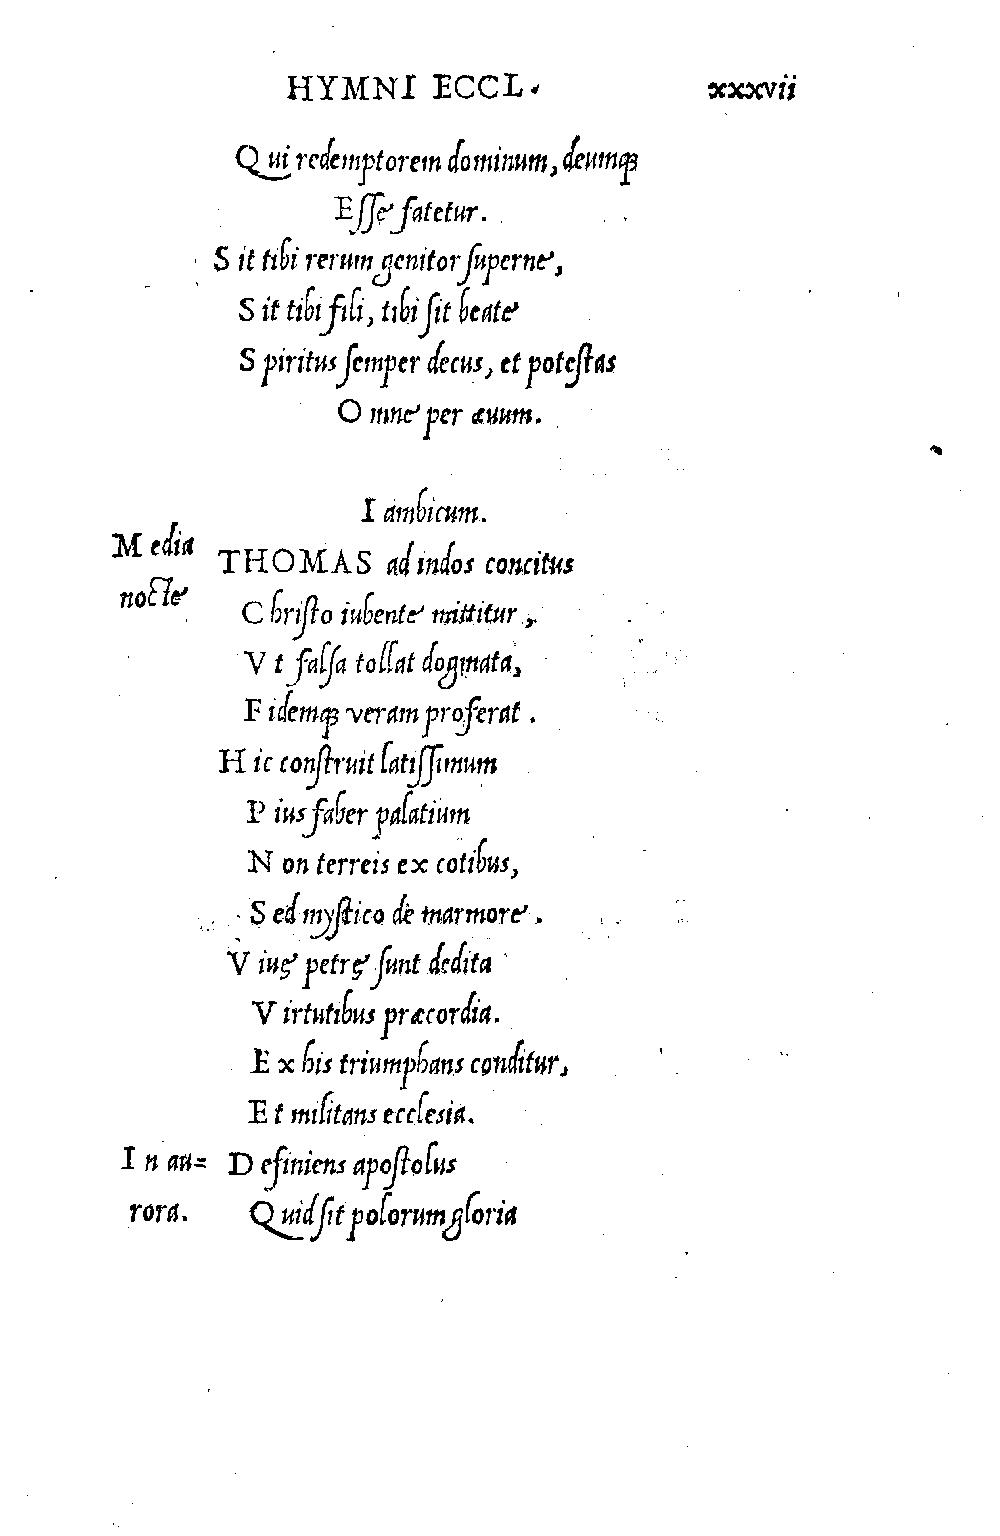 HYMNI ECCL. xxxvii
Qui redemptorem dominum, deumq;
Esse fatetur.
Sit tibi rerum genitor superne,
Sit tibi fili, tibi sit beate
Spiritus semper decus, et potestas
Omne per æuum.
Iambicum.
Media
nocte
THOMAS ad indos concitus
Christo iubente mittitur,
Vt falsa tollat dogmata,
Fidemq; veram proferat.
Hic construit latissimum
Pius faber palatium
Non terreis ex cotibus,
Sed mystico de marmore.
Viuę petrę sunt dedita
Virtutibus præcordia.
Ex his triumphans conditur,
Et militans ecclesia.
In au=
rora.
Definiens apostolus
Quid sit polorum gloria